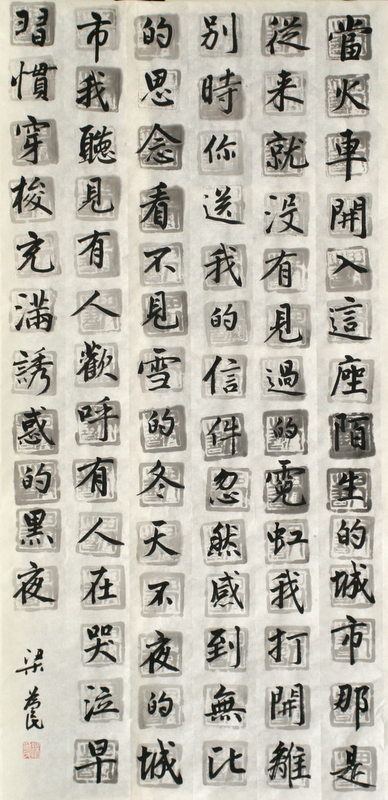 當火車開入這座陌生的城市那是
從来就没有見過的霓虹我打開離
别時你送我的信件忽然感到無比
的思念看不見雪的冬天不夜的城
市我聽見有人歡呼有人在哭泣早
習慣穿梭充滿誘惑的黑夜
梁